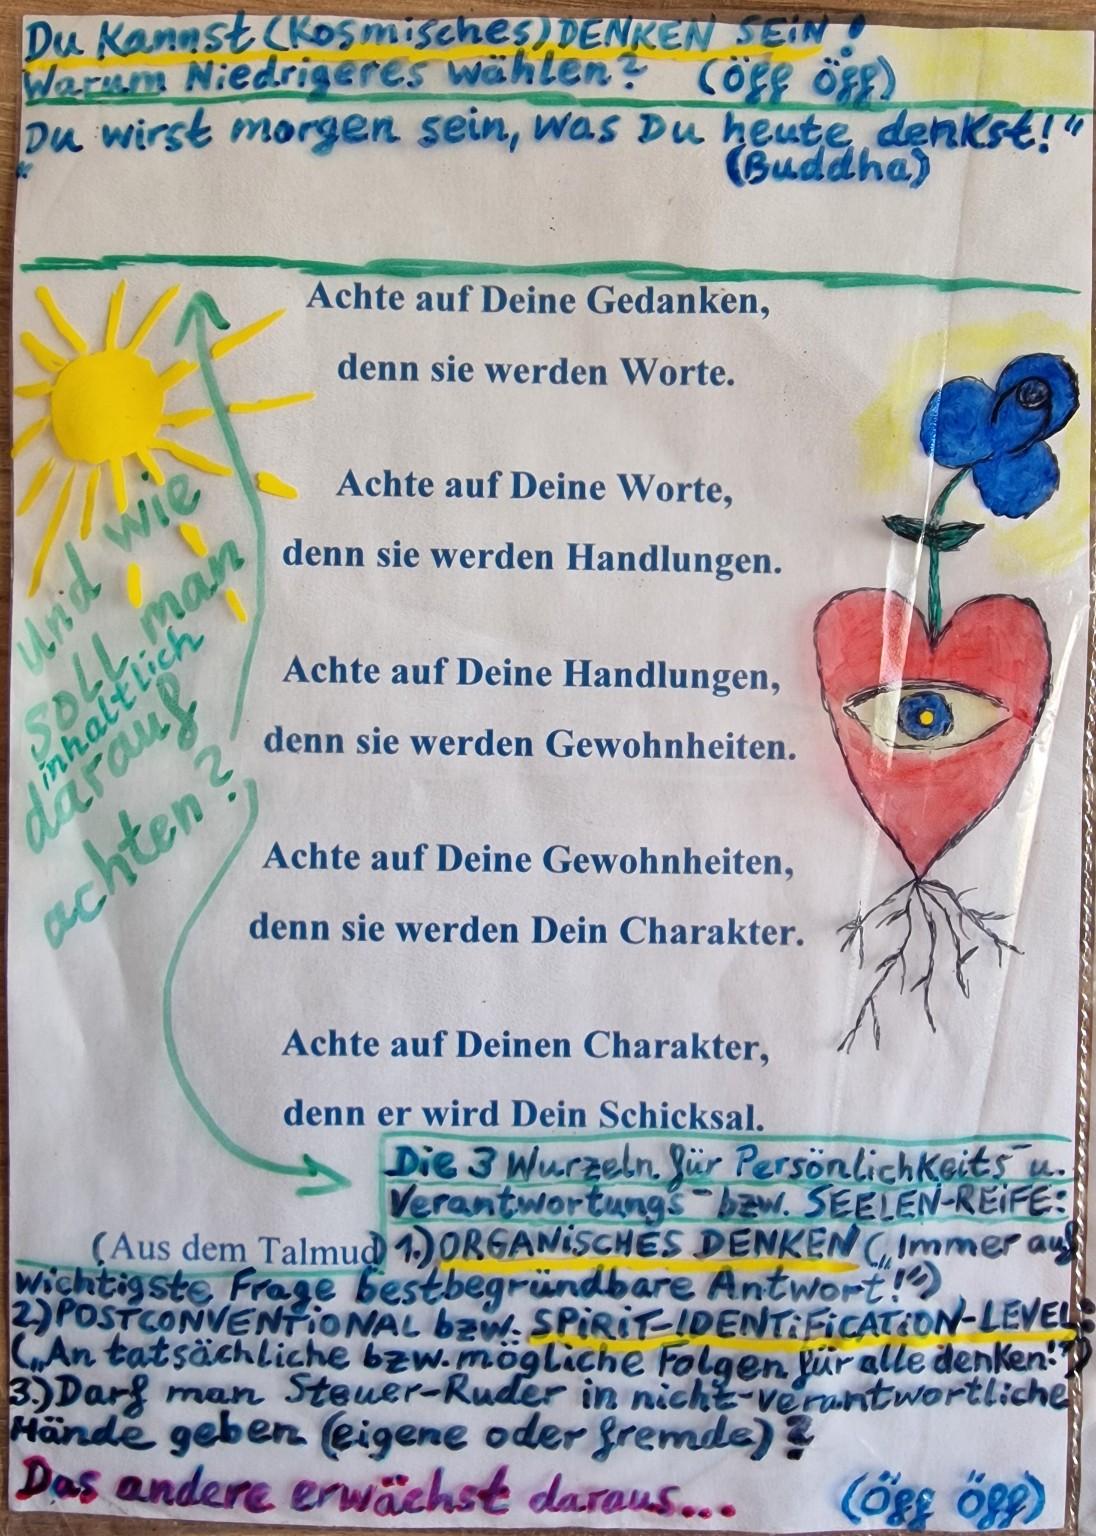 Du Kannst (Kosmisches) DENKEN SEIN!
Warum Niedrigeres wählen? (Öff Öff)
"Du wirst morgen sein, was Du heute denkst!"
(Buddha)
Achte auf Deine Gedanken,
denn sie werden Worte.
Achte auf Deine Worte,
denn sie werden Handlungen.
Achte auf Deine Handlungen,
denn sie werden Gewohnheiten.
Achte auf Deine Gewohnheiten,
denn sie werden Dein Charakter.
Achte auf Deinen Charakter,
denn er wird Dein Schicksal.
(Aus dem Talmud)
Und wie
soll man
inhaltlich
darauf
achten?
Die 3 Wurzeln für Persönlichkeits- u.
Verantwortungs- bzw. SEELEN-REIFE:
1.) ORGANISCHES DENKEN („Immer auf
wichtigste Frage bestbegründbare Antwort!")
2.) POSTCONVENTIONAL bzw. SPIRIT-IDENTIFICATION-LEVEL:
(„An tatsächliche bzw. mögliche Folgen für alle denken!")
3.) Darf man Steuer-Ruder in nicht-verantwortliche
Hände geben (eigene oder fremde)?
Das andere erwächst daraus... (Öff Öff)